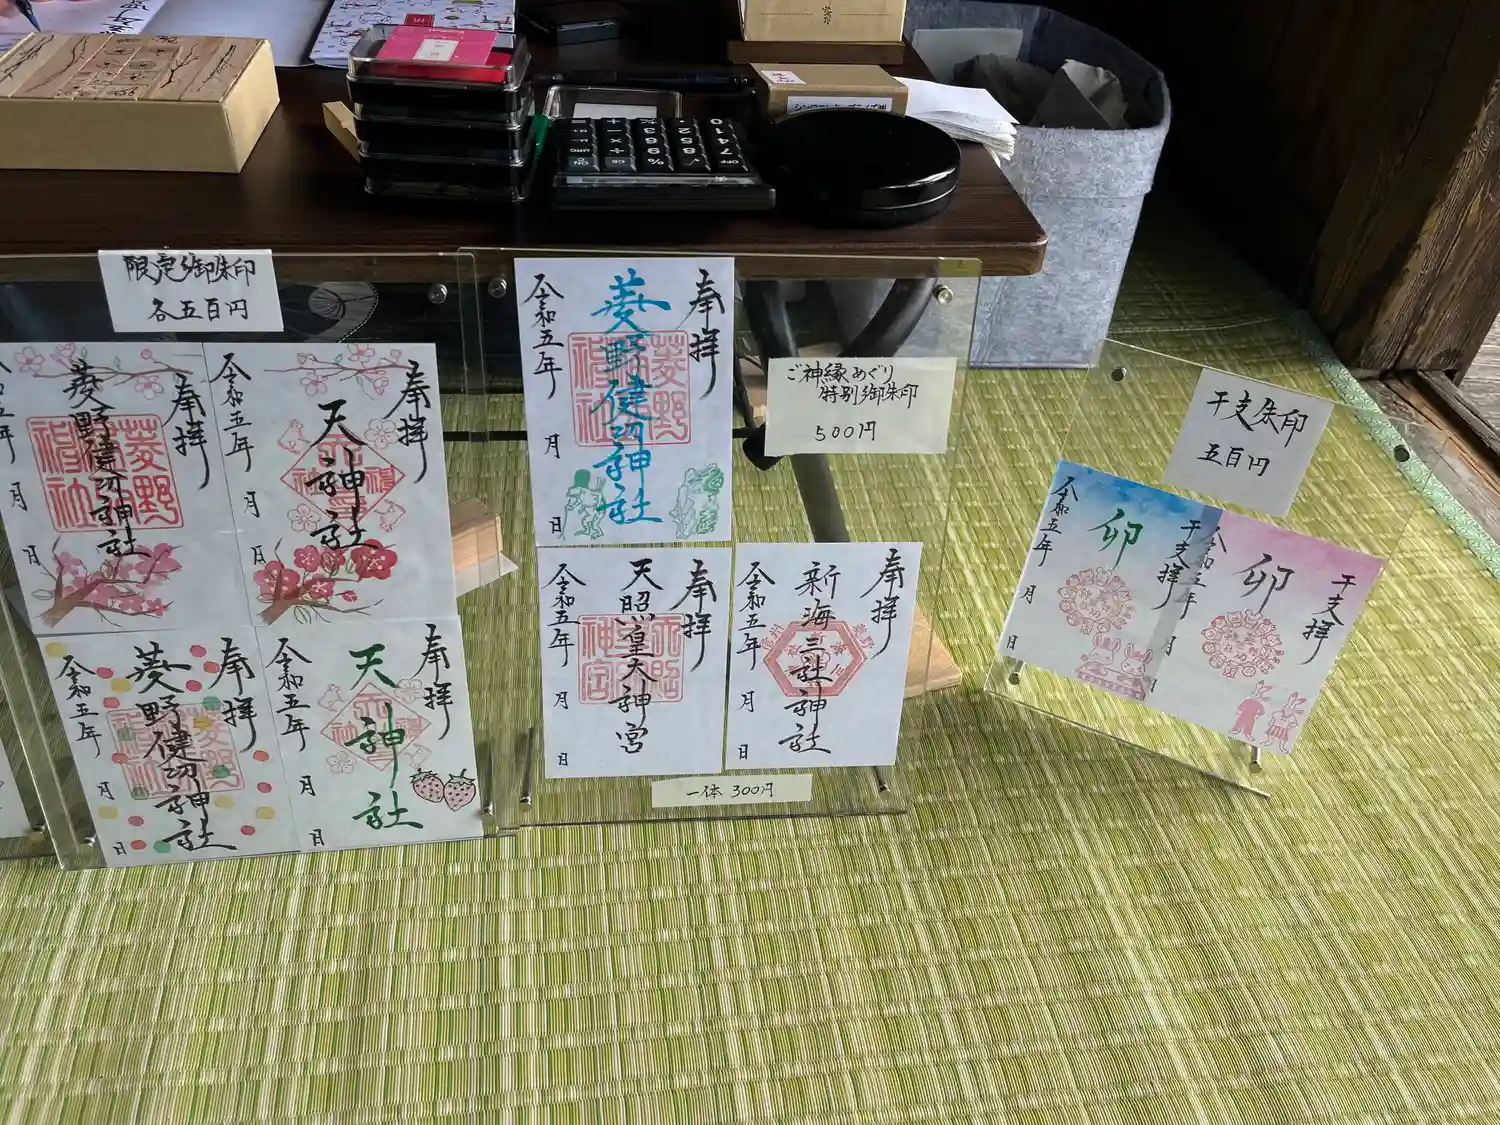 限定御朱印
各五百円
奉拝
菱野健功神社
令和五年
月
日
奉拝
天神社
令和五年
月
日
奉拝
菱野健功神社
令和五年
月
日
奉拝
天神社
令和五年
月
日
奉拝
菱野健功神社
菱野
令和五年
月
日
ご神縁めぐり
特別御朱印
500円
奉拝
天照皇大神宮
令和五年
月
日
奉拝
新海三社神社
令和五年
月
日
一体 300円
干支朱印
五百円
干支拝
卯
令和五年
月
日
干支拝
卯
令和五年
月